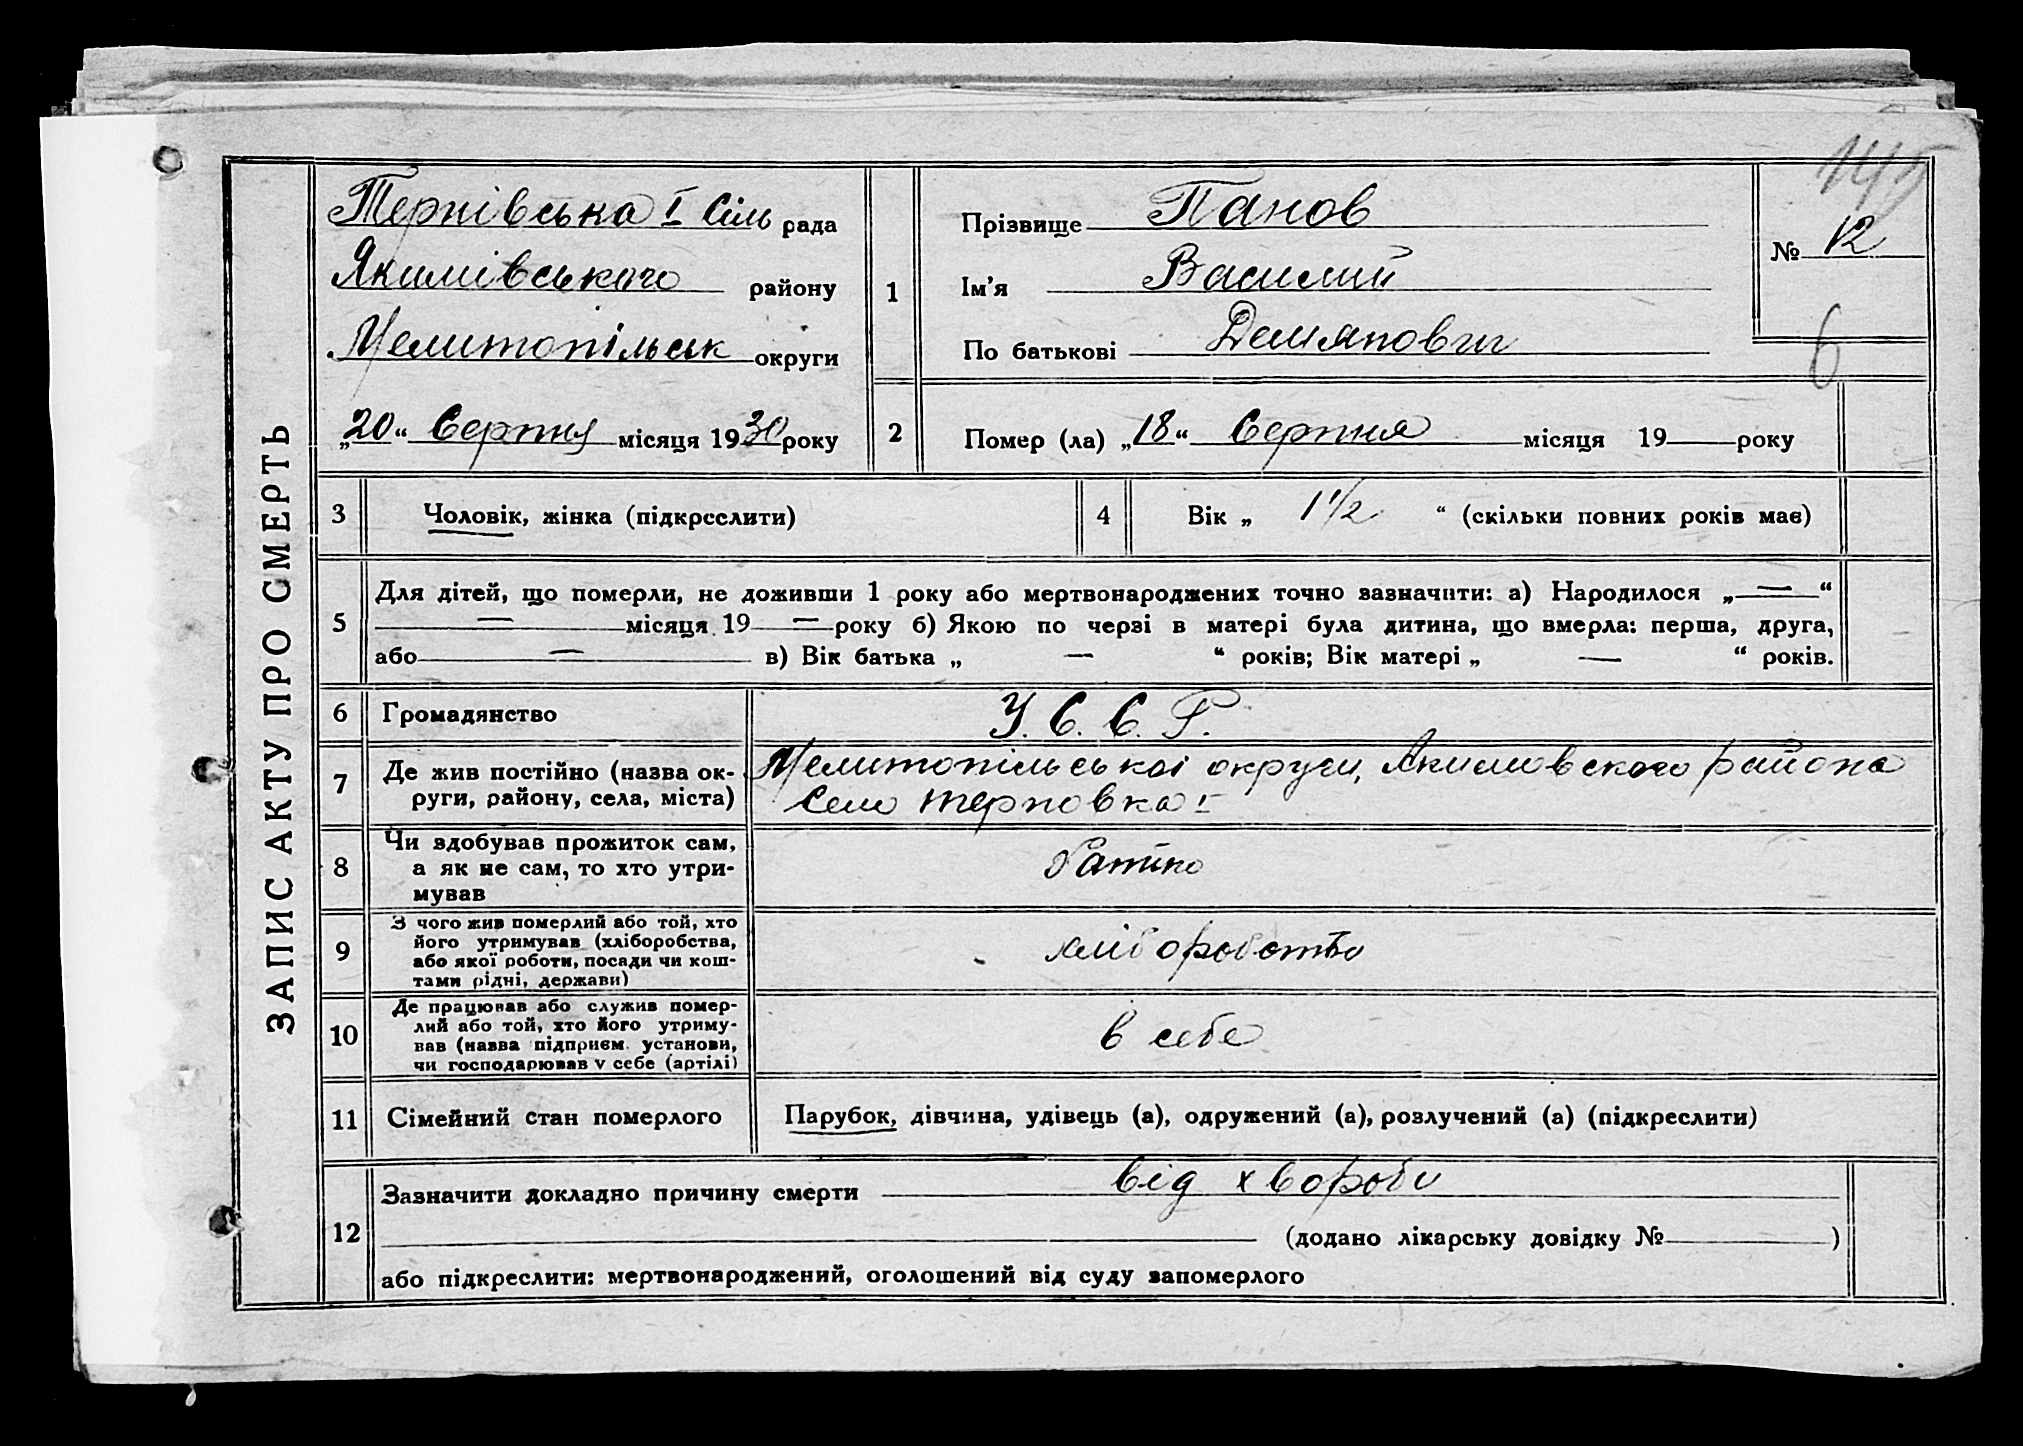 ЗАПИС АКТУ ПРО СМЕРТЬ
Терпівська I Сіль рада
Якимівського району
Мелитопільськ округи
„20“ Серпня місяця 1930 року
1
Прізвище Панов
Ім’я Василий
По батькові Демянович
№ 12
6
2
Помер (ла) „18“ Серпня місяця 19 року
3
Чоловік, жінка (підкреслити)
4
Вік „ 1 1/2 “ (скільки повних років має)
5
Для дітей, що померли, не доживши 1 року або мертвонароджених точно зазначити: а) Народилося „—“
— місяця 19 — року б) Якою по черзі в матері була дитина, що вмерла: перша, друга,
або — в) Вік батька „ — “ років; Вік матері „ — “ років.
6
Громадянство
У. С. С. Р.
7
Де жив постійно (назва ок-
руги, району, села, міста)
Мелитопільської округи, Акимовского района
Село Терповка I
8
Чи здобував прожиток сам,
а як не сам, то хто утри-
мував
Батько
9
З чого жив померлий або той, хто
його утримував (хліборобства,
або якої роботи, посади чи кош-
тами рідні, держави)
хліборобство
10
Де працював або служив помер-
лий або той, хто його утриму-
вав (назва підприєм. установи,
чи господарював у себе (артілі)
в себе
11
Сімейний стан померлого
Парубок, дівчина, удівець (а), одружений (а), розлучений (а) (підкреслити)
12
Зазначити докладно причину смерти від хвороби
(додано лікарську довідку № )
або підкреслити: мертвонароджений, оголошений від суду запомерлого